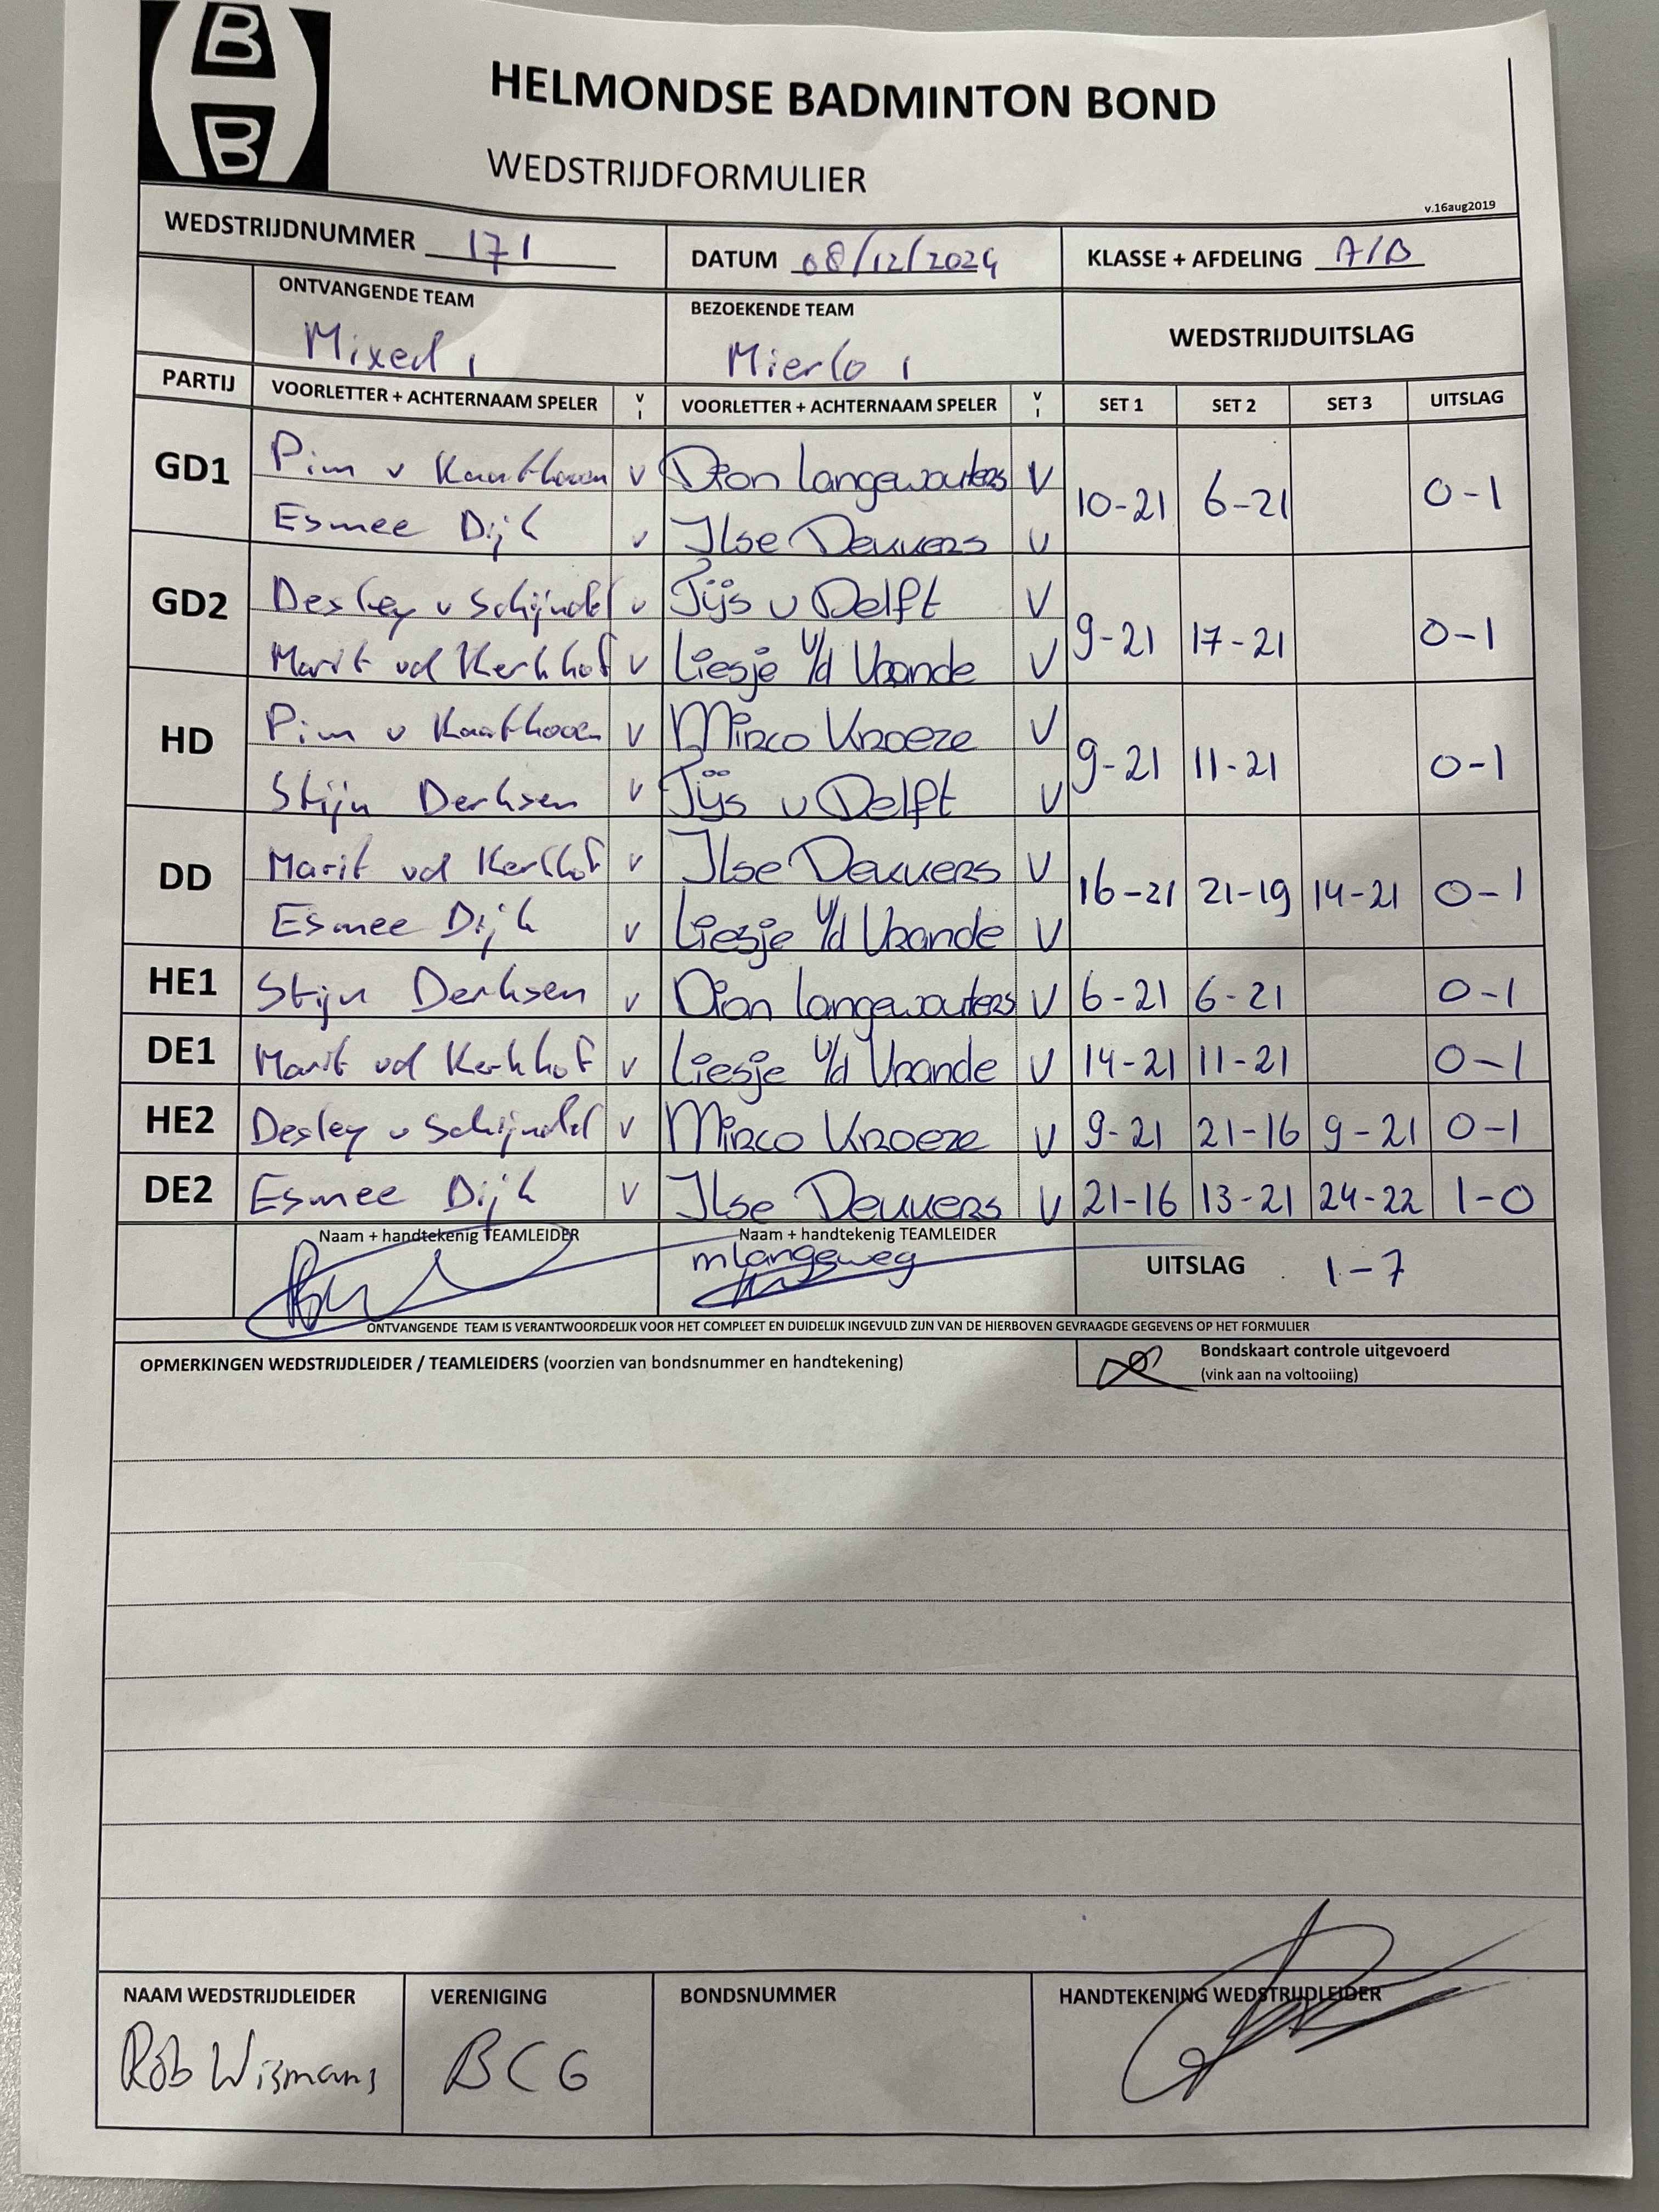 B
B
HELMONDSE BADMINTON BOND
WEDSTRIJDFORMULIER
v.16aug2019
WEDSTRIJDNUMMER 171 DATUM 08/12/2024 KLASSE + AFDELING A/B
ONTVANGENDE TEAM BEZOEKENDE TEAM WEDSTRIJDUITSLAG
Mixed 1 Mierlo 1
PARTIJ VOORLETTER + ACHTERNAAM SPELER V I VOORLETTER + ACHTERNAAM SPELER V I SET 1 SET 2 SET 3 UITSLAG
GD1 Pim v Kaathoven v Dion Langewouters V 10-21 6-21 0-1
Esmee Dijk v Ilse Deuvers V
GD2 Desley v Schijndel v Tijs v Delft V 9-21 17-21 0-1
Marit vd Kerkhof v Liesje v/d Vrande V
HD Pim v Kaathoven v Mirco Kroeze V 9-21 11-21 0-1
Stijn Derksen v Tijs v Delft V
DD Marit vd Kerkhof v Ilse Deuvers V 16-21 21-19 14-21 0-1
Esmee Dijk v Liesje v/d Vrande V
HE1 Stijn Derksen v Dion Langewouters V 6-21 6-21 0-1
DE1 Marit vd Kerkhof v Liesje v/d Vrande V 14-21 11-21 0-1
HE2 Desley v Schijndel v Mirco Kroeze V 9-21 21-16 9-21 0-1
DE2 Esmee Dijk v Ilse Deuvers V 21-16 13-21 24-22 1-0
Naam + handtekenig TEAMLEIDER Naam + handtekenig TEAMLEIDER UITSLAG 1-7
mlangeweg
ONTVANGENDE TEAM IS VERANTWOORDELIJK VOOR HET COMPLEET EN DUIDELIJK INGEVULD ZIJN VAN DE HIERBOVEN GEVRAAGDE GEGEVENS OP HET FORMULIER
OPMERKINGEN WEDSTRIJDLEIDER / TEAMLEIDERS (voorzien van bondsnummer en handtekening) Bondskaart controle uitgevoerd
(vink aan na voltooiing)
NAAM WEDSTRIJDLEIDER VERENIGING BONDSNUMMER HANDTEKENING WEDSTRIJDLEIDER
Rob Wismans BCG